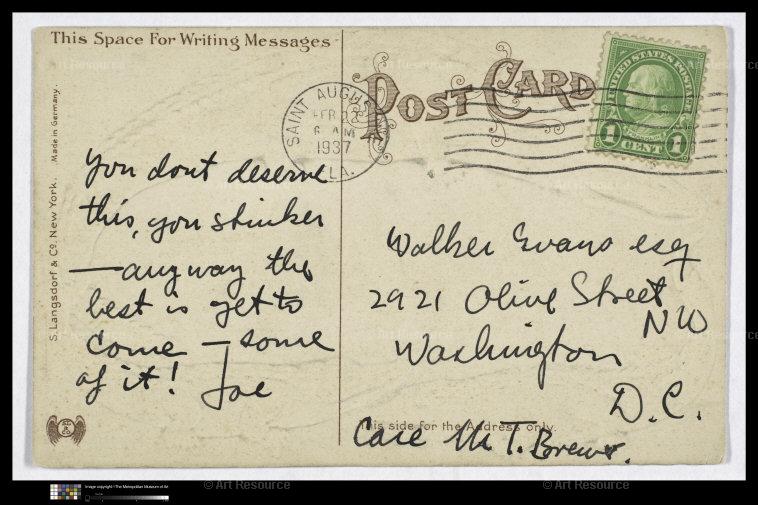 This Space For Writing Messages
POST CARD
SAINT AUGUS
FEB 22
6 AM
1937
LA.
UNITED STATES POSTAGE
1 CENT 1
Made in Germany.
S. Langsdorf & Co. New York.
you dont deserve
this, you stinker
—anyway the
best is yet to
come — some
of it! Joe
Walker Evans esq
2921 Olive Street
NW
Washington
D.C.
This side for the Address only.
Care Mr T. Brewer.
Image copyright ©The Metropolitan Museum of Art
© Art Resource
© Art Resource